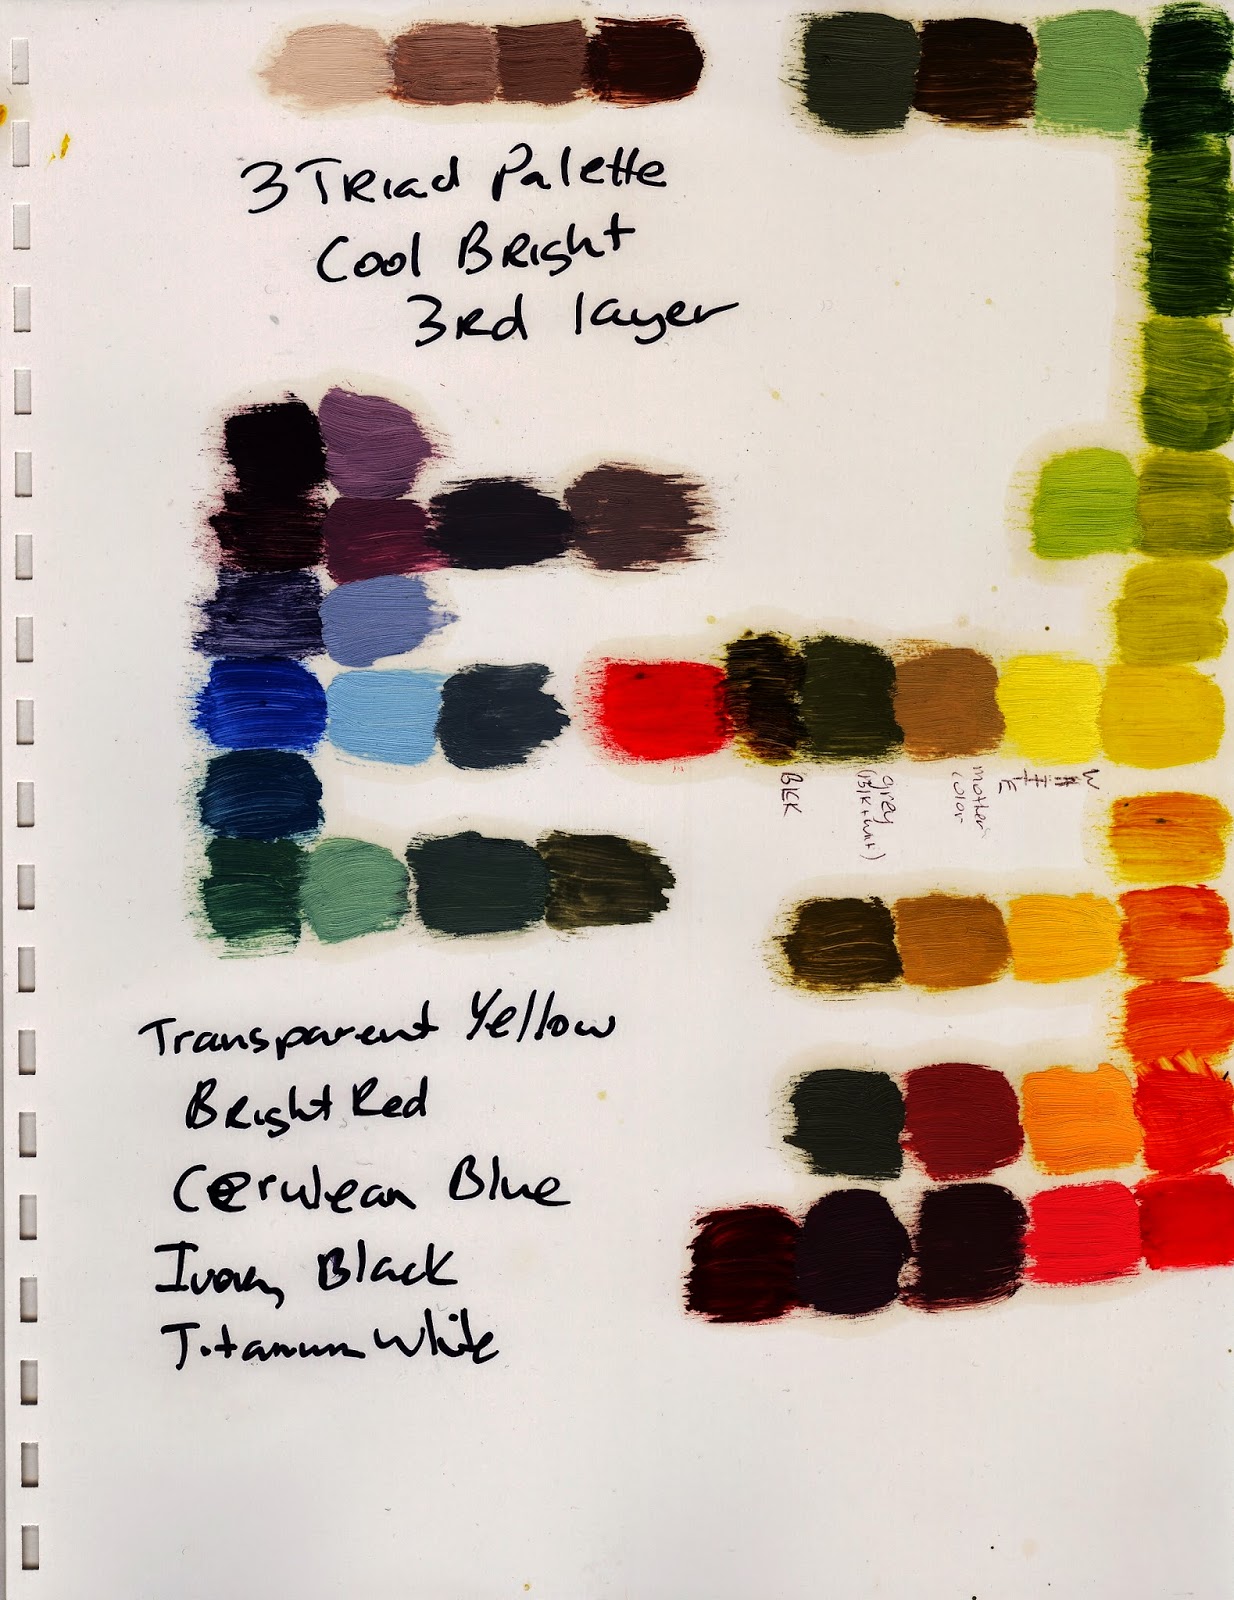 3 Triad Palette
Cool Bright
3rd layer
BLK
grey
(BlK + Wht)
mother
color
Transparent Yellow
Bright Red
Cerulean Blue
Ivory Black
Titanium White